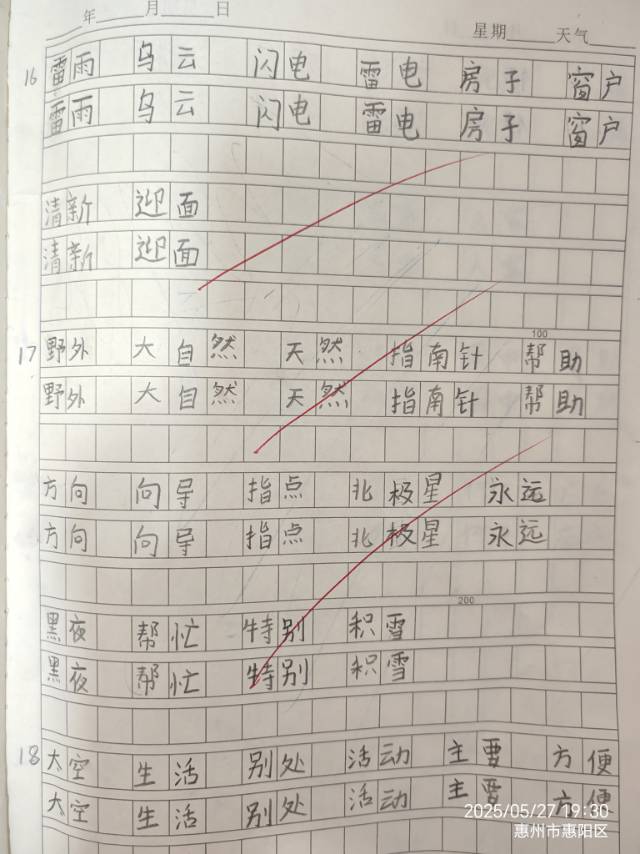 年 月 日 星期 天气
16 雷雨 乌云 闪电 雷电 房子 窗户
雷雨 乌云 闪电 雷电 房子 窗户
清新 迎面
清新 迎面
100
17 野外 大自然 天然 指南针 帮助
野外 大自然 天然 指南针 帮助
方向 向导 指点 北极星 永远
方向 向导 指点 北极星 永远
200
黑夜 帮忙 特别 积雪
黑夜 帮忙 特别 积雪
18 太空 生活 别处 活动 主要 方便
太空 生活 别处 活动 主要 方便
2025/05/27 19:30
惠州市惠阳区